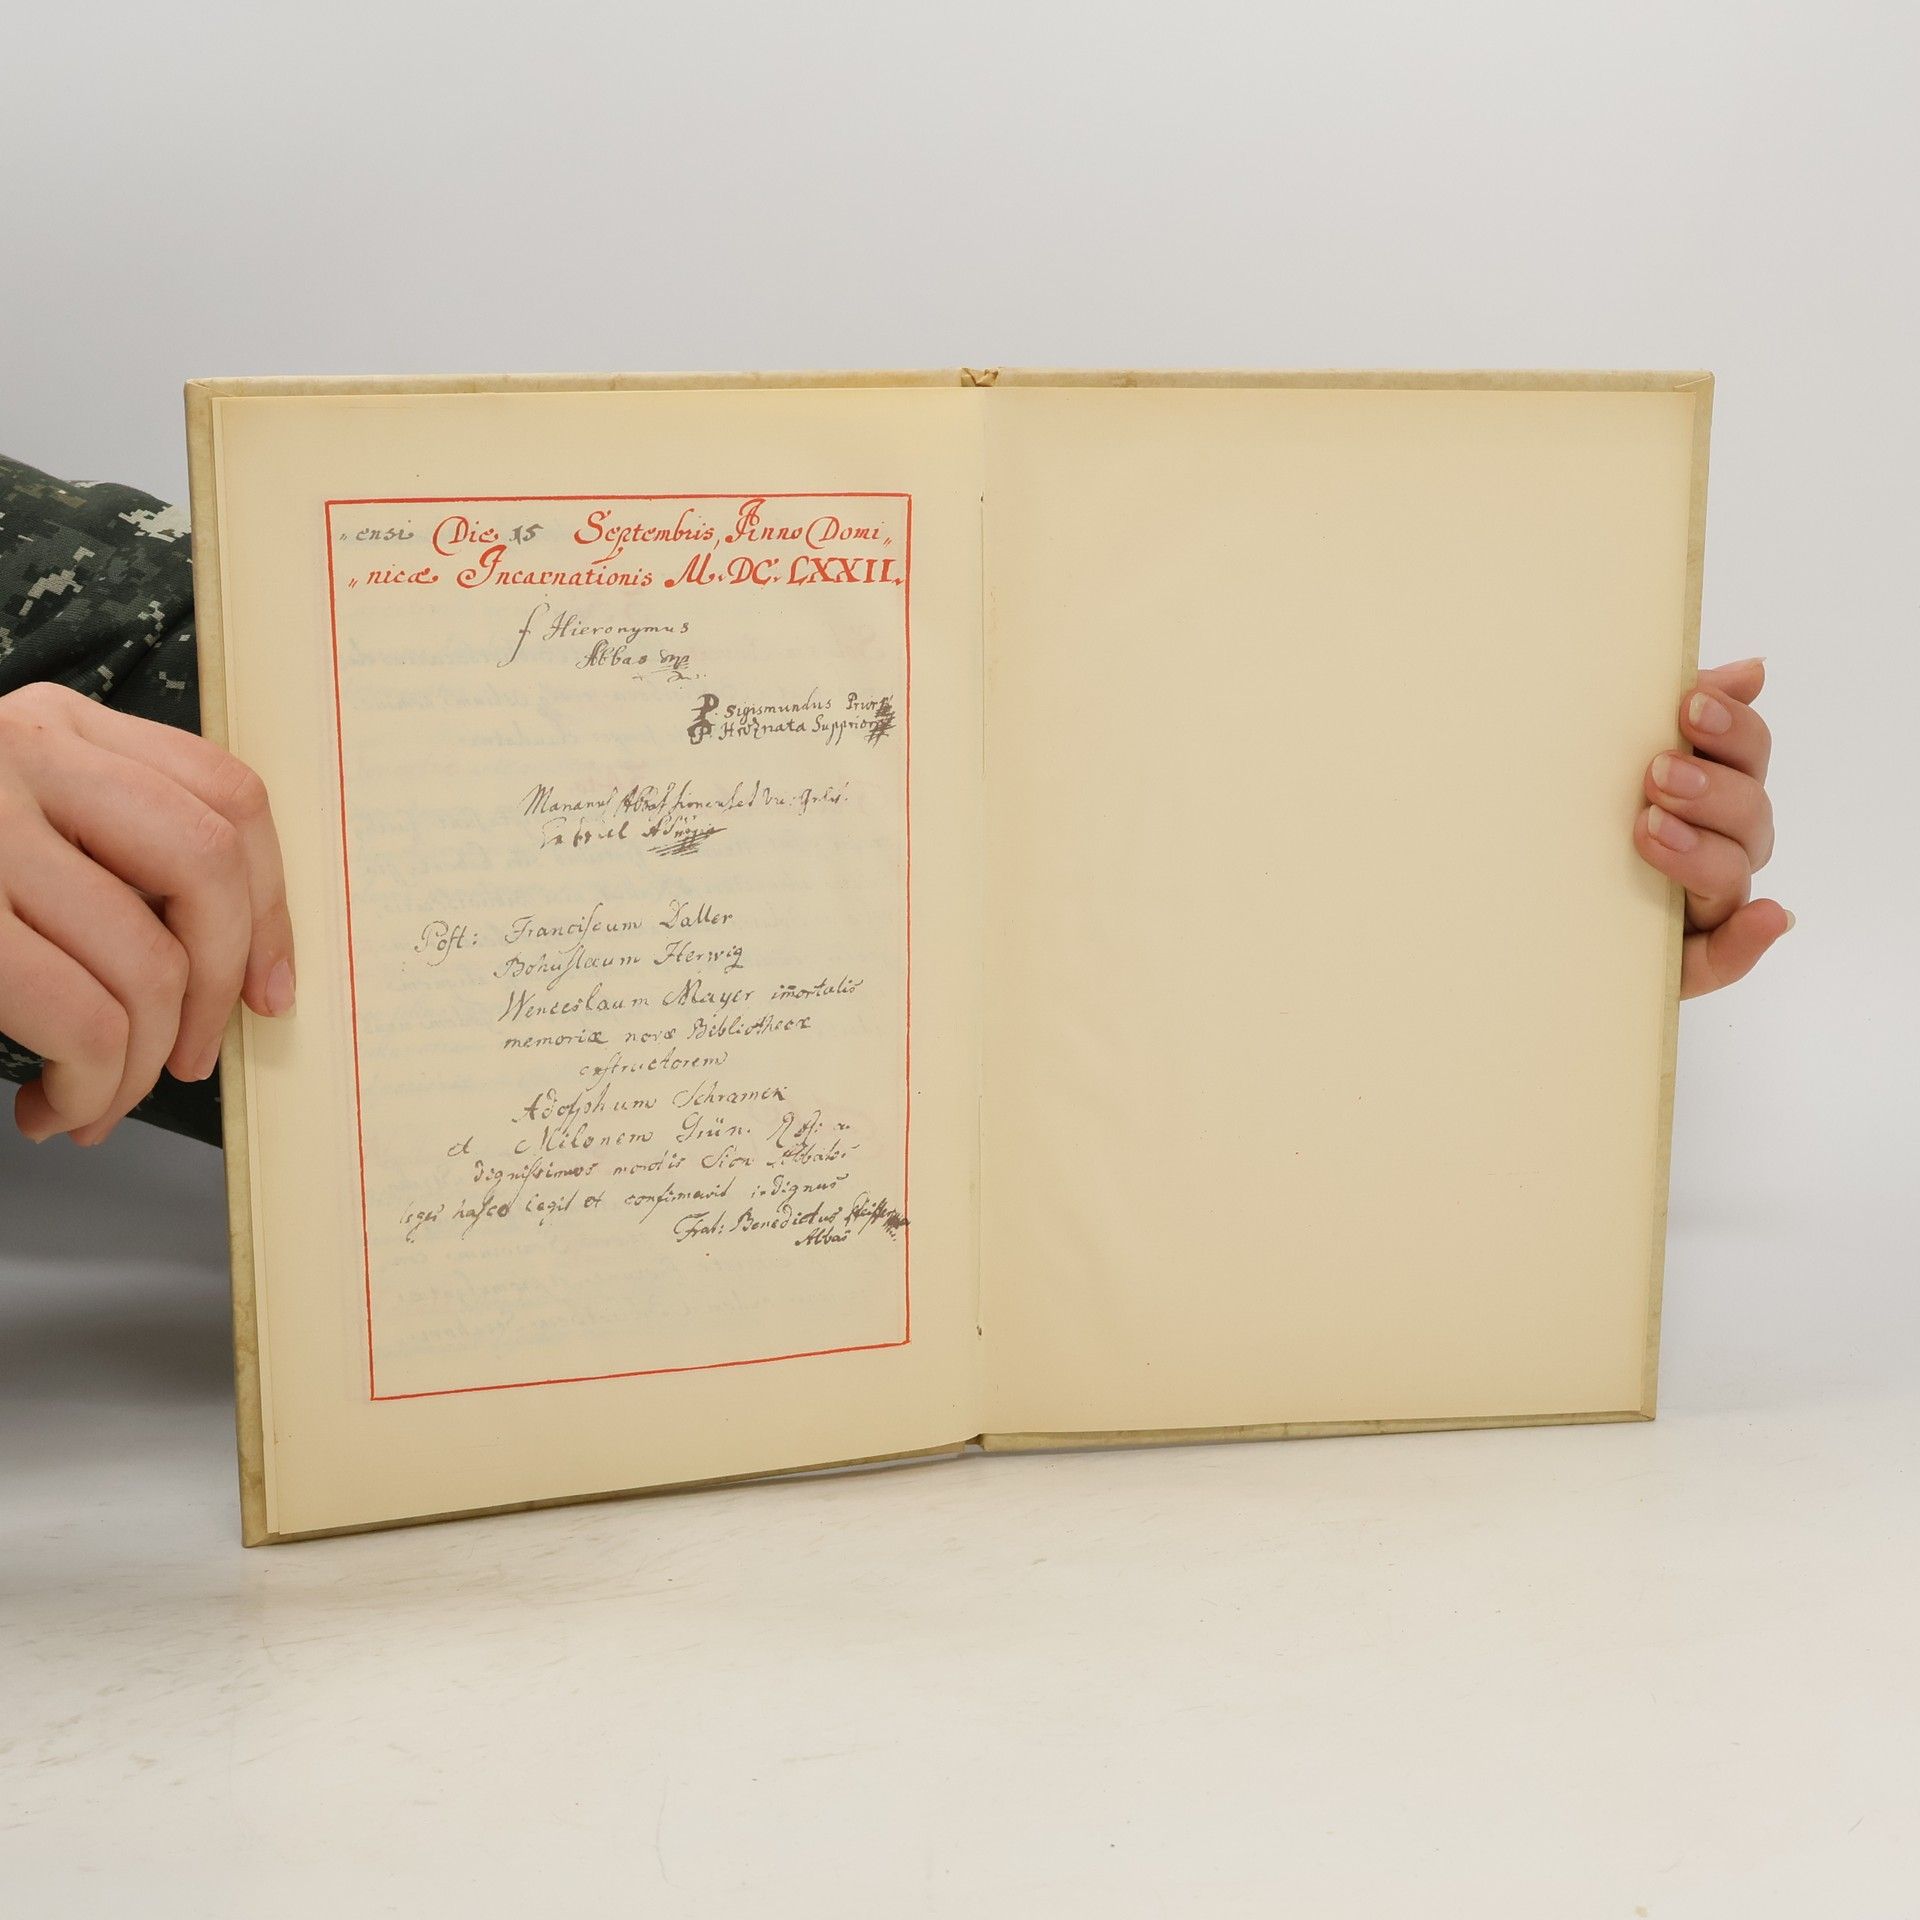 „ensi Die 15 Septembris, Anno Domi„
„nicæ Incarnationis M.DC.LXXII.
f Hieronymus
Abbas mp
P. Sigismundus Prior
P. Hroznata Supprior
Abbas
Gabriel
Post: Franciscum Daller
Bohuslaum Herwig
Wenceslaum Mayer im̄ortalis
memoriæ novæ Bibliothecæ
exstructorem
Adolphum Schramek
et Milonem Grün.
dignissimos Sion Abbates
leges hasce legit et confirmavit indignus
Frat: Benedictus Pfeiffer
Abbas